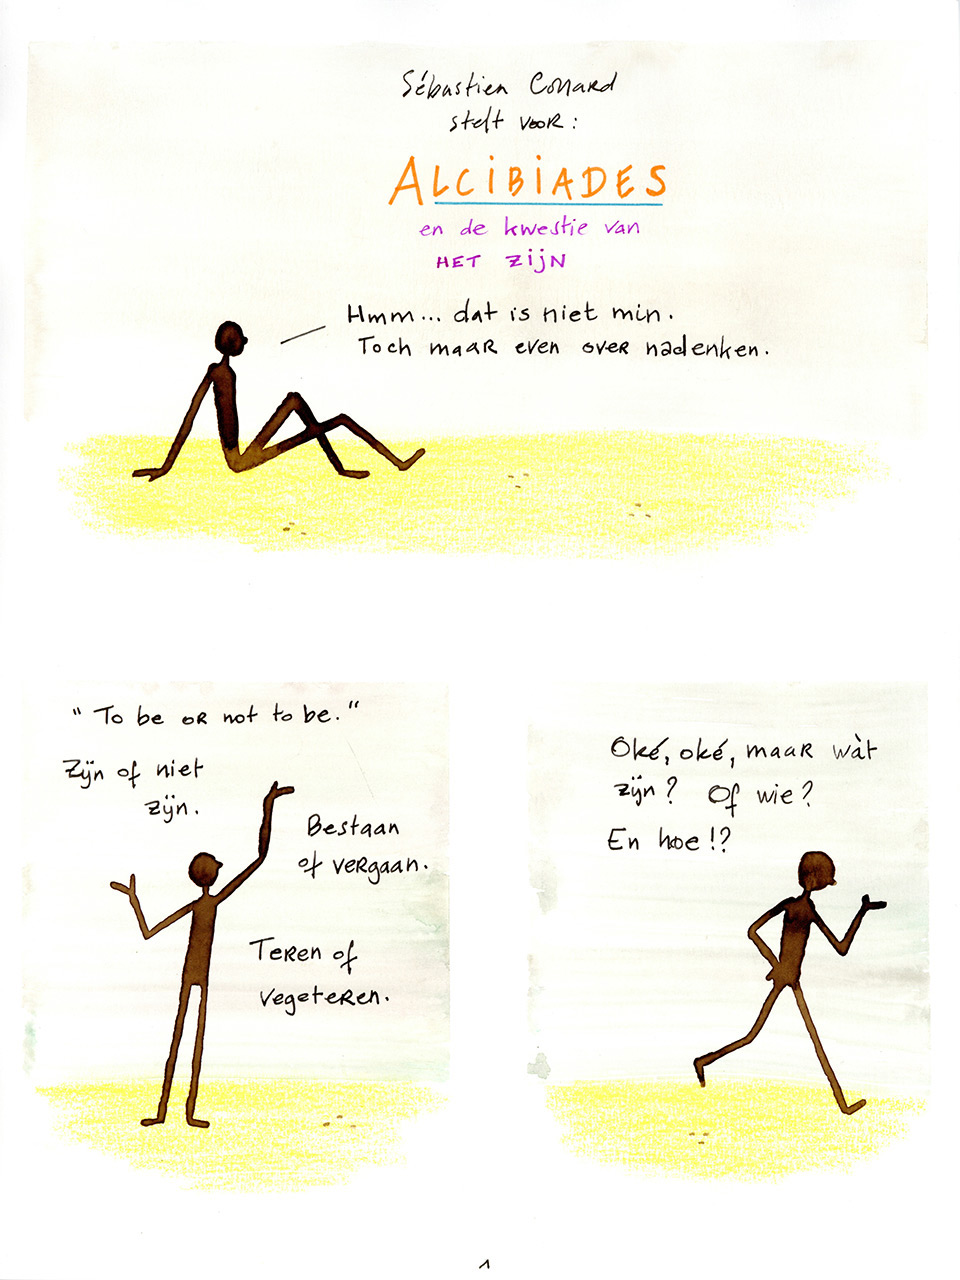 Sébastien Conard
stelt voor:
ALCIBIADES
en de kwestie van
HET ZIJN
Hmm... dat is niet min.
Toch maar even over nadenken.
"To be or not to be."
Zijn of niet
zijn.
Bestaan
of vergaan.
Teren of
vegeteren.
Oké, oké, maar wàt
zijn? Of wie?
En hoe!?
1